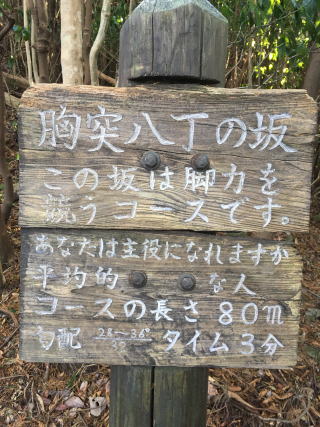 胸突八丁の坂
この坂は脚力を
競うコースです。
あなたは主役になれますか
平均的な人
コースの長さ80m
勾配 28~36° タイム3分